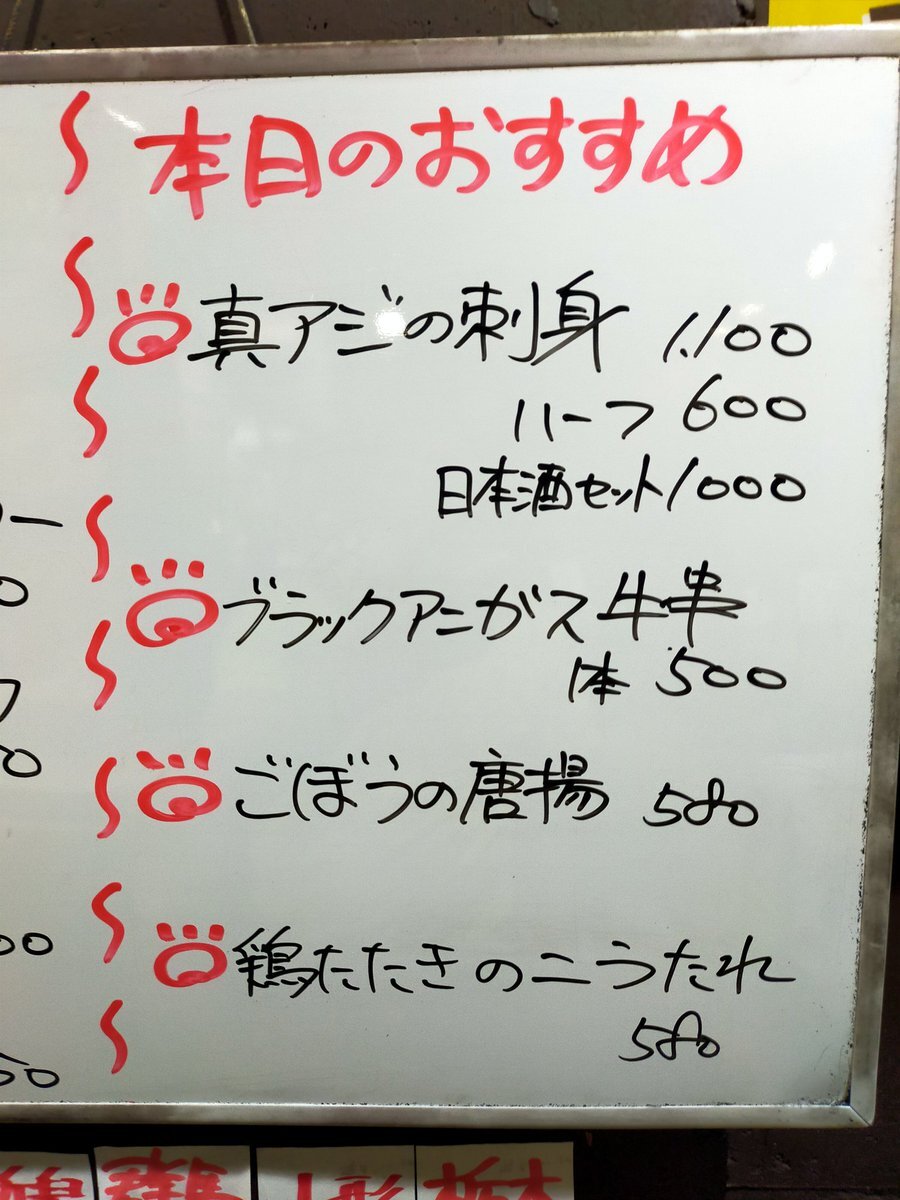 本日のおすすめ
真アジの刺身 1.100
ハーフ 600
日本酒セット 1000
ブラックアンガス牛串
1本 500
ごぼうの唐揚 580
鶏たたきのニうたれ
580
栃木